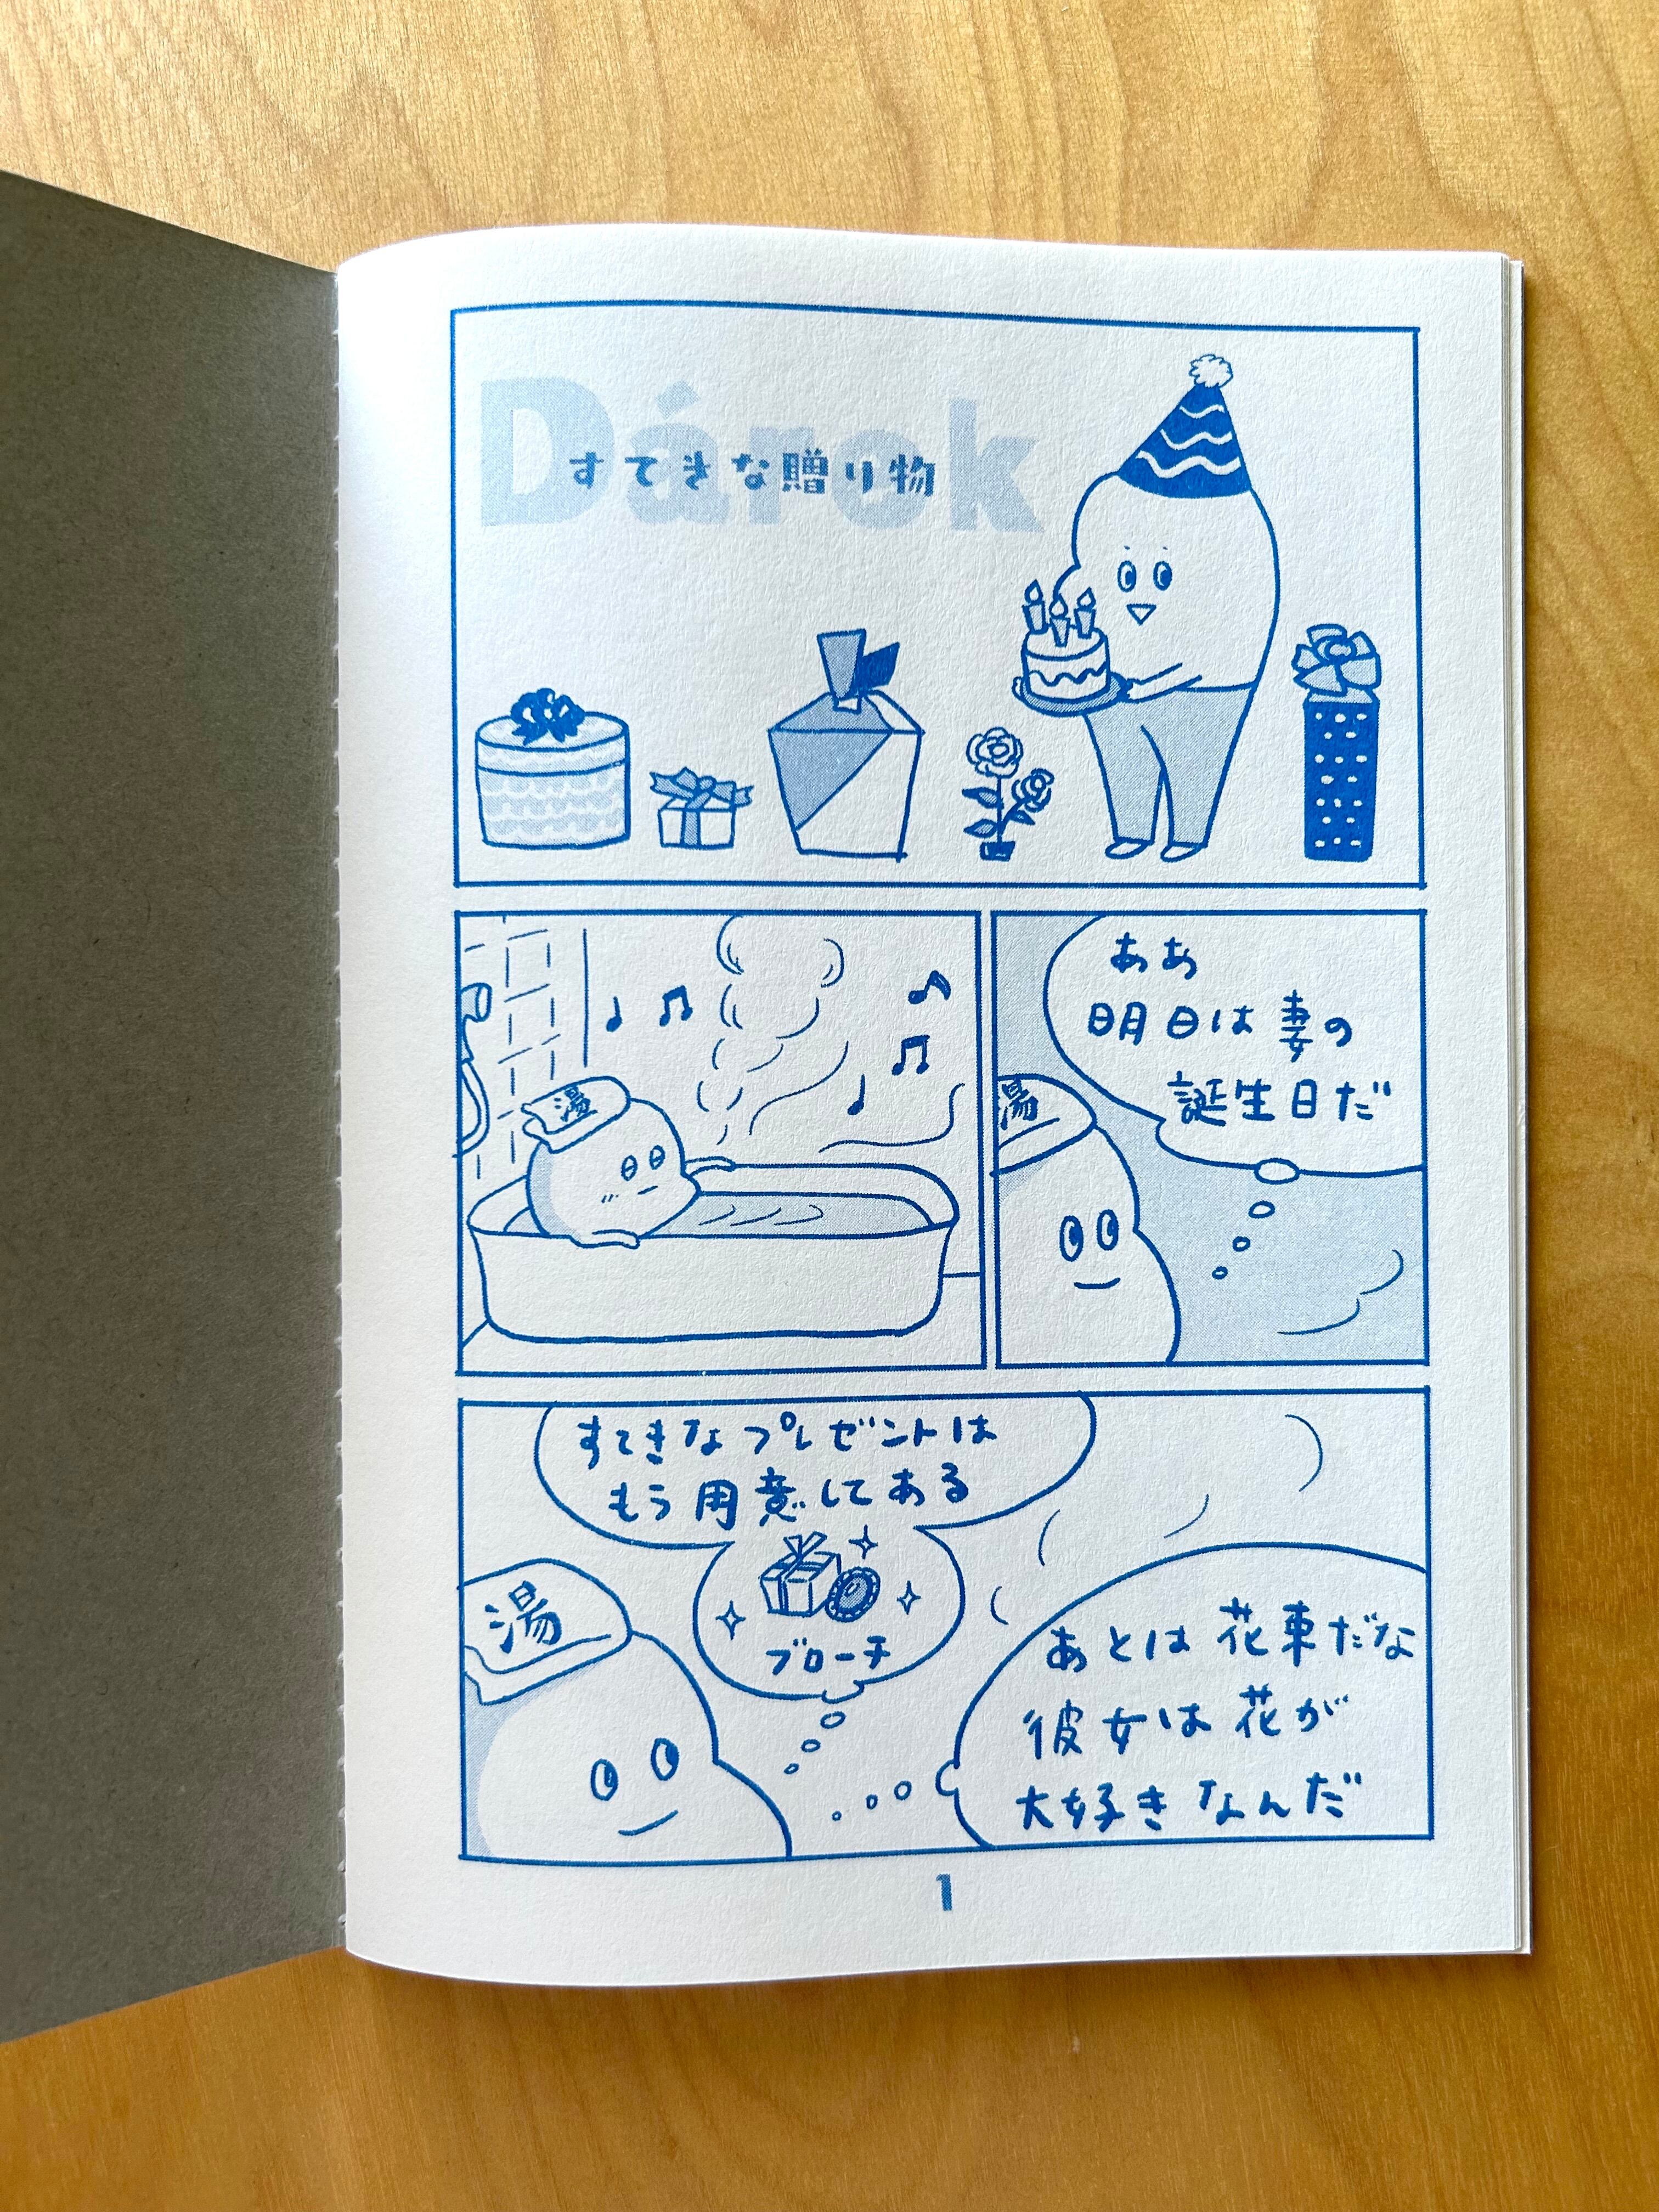 Dárok
すてきな贈り物
湯
ああ
明日は妻の
誕生日だ
湯
すてきなプレゼントは
もう用意してある
ブローチ
湯
あとは花束だな
彼女は花が
大好きなんだ
1